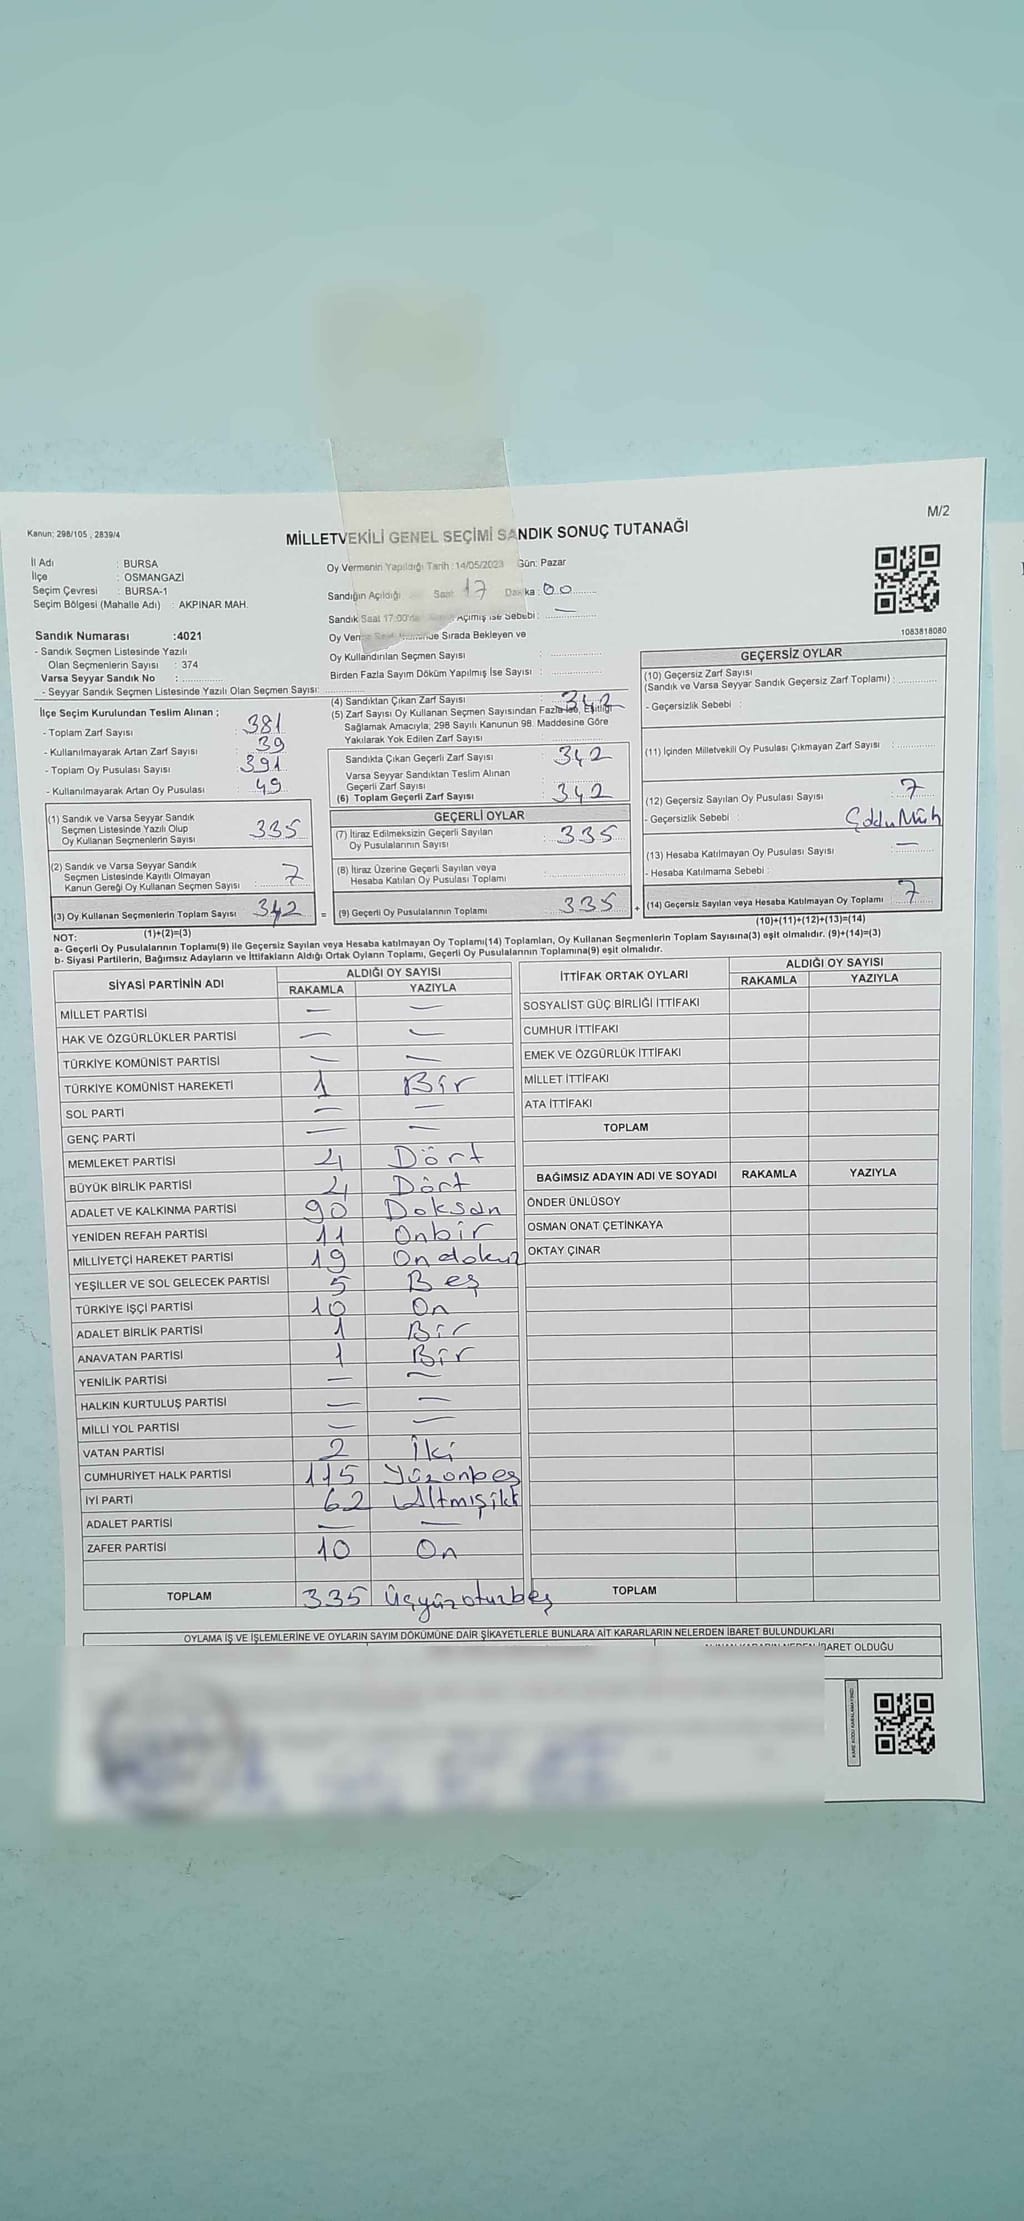 Kanun: 298/105 , 2839/4
M/2
MİLLETVEKİLİ GENEL SEÇİMİ SANDIK SONUÇ TUTANAĞI
İl Adı : BURSA
İlçe : OSMANGAZİ
Seçim Çevresi : BURSA-1
Seçim Bölgesi (Mahalle Adı) : AKPINAR MAH.
Sandık Numarası :4021
- Sandık Seçmen Listesinde Yazılı
Olan Seçmenlerin Sayısı : 374
Varsa Seyyar Sandık No :
- Seyyar Sandık Seçmen Listesinde Yazılı Olan Seçmen Sayısı:
Oy Vermenin Yapıldığı Tarih : 14/05/2023 Gün: Pazar
Sandığın Açıldığı Saat 17 Dakika : 00
Sandık Saat 17:00'da Açılmış ise Sebebi : —
Oy Verme Sırada Bekleyen ve
Oy Kullandırılan Seçmen Sayısı :
Birden Fazla Sayım Döküm Yapılmış İse Sayısı :
1083818080
İlçe Seçim Kurulundan Teslim Alınan ;
- Toplam Zarf Sayısı : 381
- Kullanılmayarak Artan Zarf Sayısı : 39
- Toplam Oy Pusulası Sayısı : 391
- Kullanılmayarak Artan Oy Pusulası : 49
(1) Sandık ve Varsa Seyyar Sandık
Seçmen Listesinde Yazılı Olup
Oy Kullanan Seçmenlerin Sayısı : 335
(2) Sandık ve Varsa Seyyar Sandık
Seçmen Listesinde Kayıtlı Olmayan
Kanun Gereği Oy Kullanan Seçmen Sayısı : 7
(3) Oy Kullanan Seçmenlerin Toplam Sayısı 342
(1)+(2)=(3)
(4) Sandıktan Çıkan Zarf Sayısı : 342
(5) Zarf Sayısı Oy Kullanan Seçmen Sayısından Fazla ise, Eşitliği
Sağlamak Amacıyla; 298 Sayılı Kanunun 98. Maddesine Göre
Yakılarak Yok Edilen Zarf Sayısı :
Sandıkta Çıkan Geçerli Zarf Sayısı : 342
Varsa Seyyar Sandıktan Teslim Alınan
Geçerli Zarf Sayısı :
(6) Toplam Geçerli Zarf Sayısı : 342
GEÇERLİ OYLAR
(7) İtiraz Edilmeksizin Geçerli Sayılan
Oy Pusulalarının Sayısı : 335
(8) İtiraz Üzerine Geçerli Sayılan veya
Hesaba Katılan Oy Pusulası Toplamı :
= (9) Geçerli Oy Pusulalarının Toplamı : 335 +
GEÇERSİZ OYLAR
(10) Geçersiz Zarf Sayısı
(Sandık ve Varsa Seyyar Sandık Geçersiz Zarf Toplamı) :
- Geçersizlik Sebebi :
(11) İçinden Milletvekili Oy Pusulası Çıkmayan Zarf Sayısı :
(12) Geçersiz Sayılan Oy Pusulası Sayısı : 7
- Geçersizlik Sebebi :
(13) Hesaba Katılmayan Oy Pusulası Sayısı : —
- Hesaba Katılmama Sebebi :
(14) Geçersiz Sayılan veya Hesaba Katılmayan Oy Toplamı : 7
(10)+(11)+(12)+(13)=(14)
NOT:
a- Geçerli Oy Pusulalarının Toplamı(9) ile Geçersiz Sayılan veya Hesaba katılmayan Oy Toplamı(14) Toplamları, Oy Kullanan Seçmenlerin Toplam Sayısına(3) eşit olmalıdır. (9)+(14)=(3)
b- Siyasi Partilerin, Bağımsız Adayların ve İttifakların Aldığı Ortak Oyların Toplamı, Geçerli Oy Pusulalarının Toplamına(9) eşit olmalıdır.
SİYASİ PARTİNİN ADI
ALDIĞI OY SAYISI
RAKAMLA YAZIYLA
MİLLET PARTİSİ — —
HAK VE ÖZGÜRLÜKLER PARTİSİ — —
TÜRKİYE KOMÜNİST PARTİSİ — —
TÜRKİYE KOMÜNİST HAREKETİ 1 Bir
SOL PARTİ — —
GENÇ PARTİ — —
MEMLEKET PARTİSİ 4 Dört
BÜYÜK BİRLİK PARTİSİ 4 Dört
ADALET VE KALKINMA PARTİSİ 90 Doksan
YENİDEN REFAH PARTİSİ 11 Onbir
MİLLİYETÇİ HAREKET PARTİSİ 19 Ondokuz
YEŞİLLER VE SOL GELECEK PARTİSİ 5 Beş
TÜRKİYE İŞÇİ PARTİSİ 10 On
ADALET BİRLİK PARTİSİ 1 Bir
ANAVATAN PARTİSİ 1 Bir
YENİLİK PARTİSİ — —
HALKIN KURTULUŞ PARTİSİ — —
MİLLİ YOL PARTİSİ — —
VATAN PARTİSİ 2 İki
CUMHURİYET HALK PARTİSİ 115 Yüzonbeş
İYİ PARTİ 62 Altmışiki
ADALET PARTİSİ — —
ZAFER PARTİSİ 10 On
TOPLAM 335 Üçyüzoturbeş
İTTİFAK ORTAK OYLARI
ALDIĞI OY SAYISI
RAKAMLA YAZIYLA
SOSYALİST GÜÇ BİRLİĞİ İTTİFAKI
CUMHUR İTTİFAKI
EMEK VE ÖZGÜRLÜK İTTİFAKI
MİLLET İTTİFAKI
ATA İTTİFAKI
TOPLAM
BAĞIMSIZ ADAYIN ADI VE SOYADI RAKAMLA YAZIYLA
ÖNDER ÜNLÜSOY
OSMAN ONAT ÇETİNKAYA
OKTAY ÇINAR
TOPLAM
OYLAMA İŞ VE İŞLEMLERİNE VE OYLARIN SAYIM DÖKÜMÜNE DAİR ŞİKAYETLERLE BUNLARA AİT KARARLARIN NELERDEN İBARET BULUNDUKLARI
İBARET OLDUĞU
KARE KODU KARALAMAYINIZ!